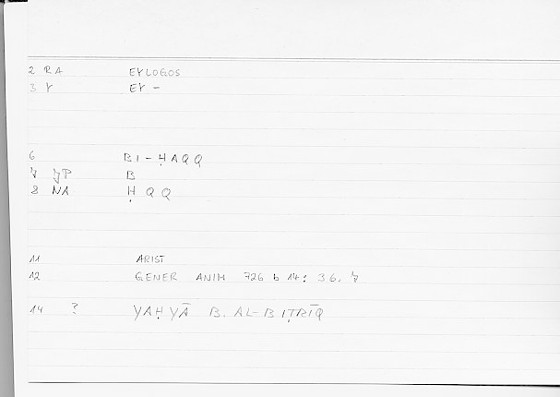 2 RA EYLOGOS
3 Y EY -
6 BI-ḤAQQ
7 JP B
8 NA Ḥ Q Q
11 ARIST
12 GENER ANIM 726 b 14: 36. 7
14 ? YAḤYĀ B. AL-BIṬRĪQ